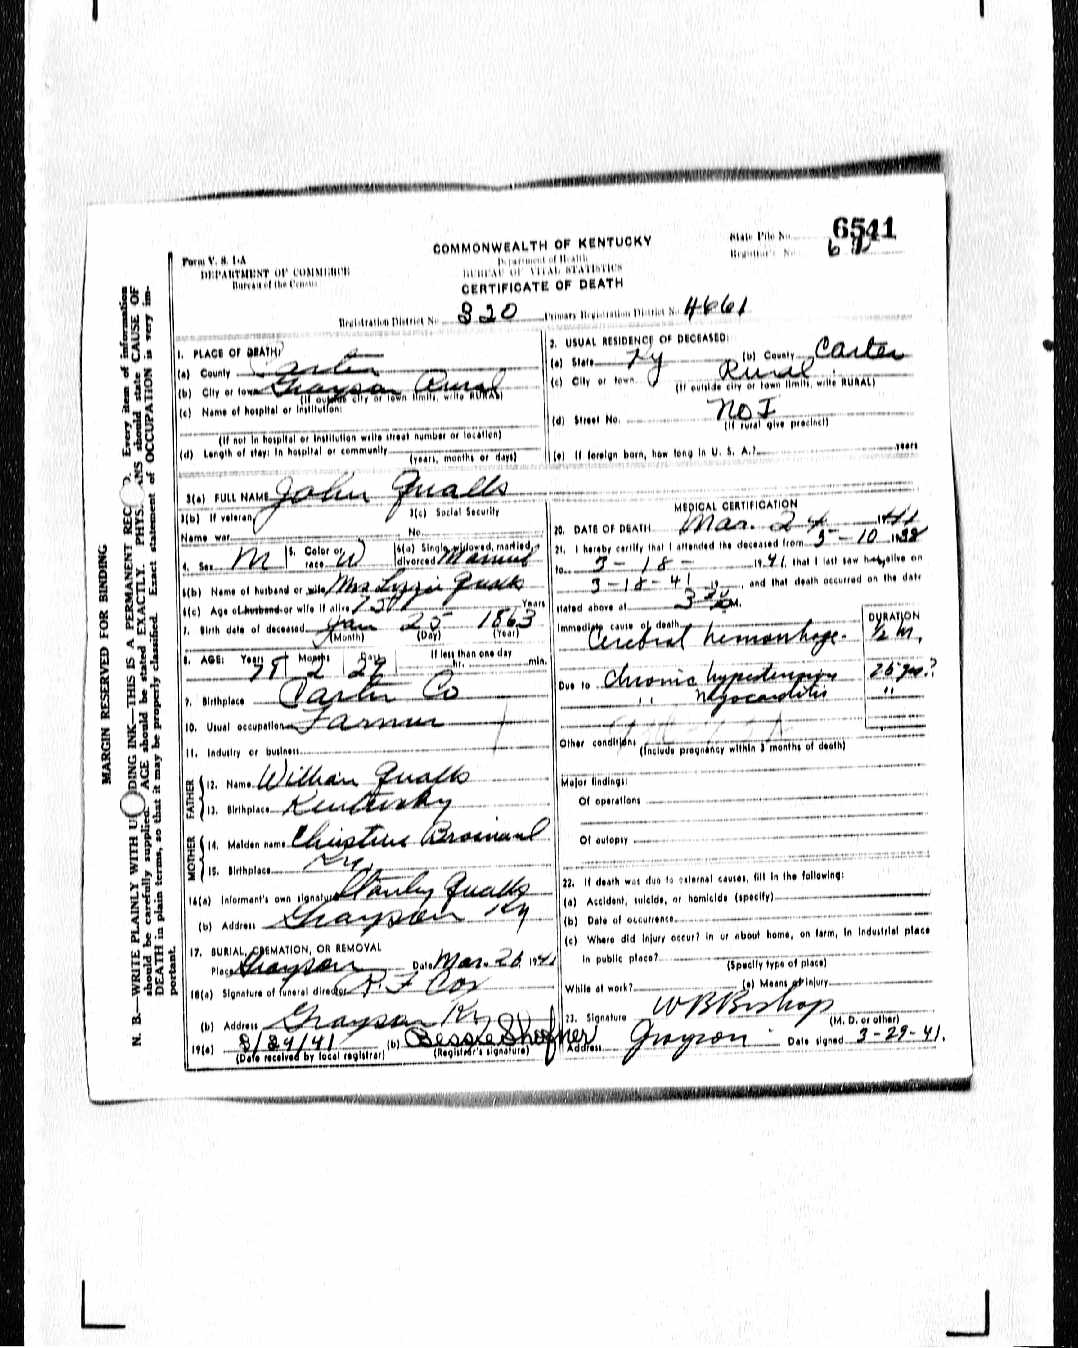 6541
State File No.
Registrar's No.
Form V. S. 1-A
DEPARTMENT OF COMMERCE
Bureau of the Census
COMMONWEALTH OF KENTUCKY
Department of Health
BUREAU OF VITAL STATISTICS
CERTIFICATE OF DEATH
Registration District No. 320 Primary Registration District No. 4661
MARGIN RESERVED FOR BINDING
N. B.—WRITE PLAINLY WITH U DING INK—THIS IS A PERMANENT REC D. Every item of information
should be carefully supplied. AGE should be stated EXACTLY. PHYS ANS should state CAUSE OF
DEATH in plain terms, so that it may be properly classified. Exact statement of OCCUPATION is very im-
portant.
1. PLACE OF DEATH:
(a) County Carter
(b) City or town Grayson Rural
(If outside city or town limits, write RURAL)
(c) Name of hospital or institution:
(If not in hospital or institution write street number or location)
(d) Length of stay: In hospital or community
(years, months or days)
2. USUAL RESIDENCE OF DECEASED:
(a) State Ky (b) County Carter
(c) City or town Rural
(If outside city or town limits, write RURAL)
(d) Street No. No I
(If rural give precinct)
(e) If foreign born, how long in U. S. A.? years
3(a) FULL NAME John Qualls
3(b) If veteran, 3(c) Social Security
Name war No.
4. Sex M 5. Color or race W 6(a) Single, widowed, married, divorced Married
6(b) Name of husband or wife Mrs Lizzie Qualls
6(c) Age of husband or wife if alive 75 Years
7. Birth date of deceased Jan 25 1863
(Month) (Day) (Year)
8. AGE: Years Months Days If less than one day
78 2 29 hr. min.
9. Birthplace Carter Co
10. Usual occupation Farmer
11. Industry or business
FATHER
12. Name William Qualls
13. Birthplace Kentucky
MOTHER
14. Maiden name Christine
15. Birthplace Ky.
16(a) Informant's own signature Stanley Qualls
(b) Address Grayson Ky
17. BURIAL, CREMATION, OR REMOVAL
Place Grayson Date Mar. 26 1941
18(a) Signature of funeral director R. F Cox
(b) Address Grayson Ky
19(a) (b) Bessie Shoffner
(Date received by local registrar) (Registrar's signature)
MEDICAL CERTIFICATION
20. DATE OF DEATH Mar. 24 1941
21. I hereby certify that I attended the deceased from 3-10 1938
to 3-18- 1941, that I last saw him alive on
3-18-41, and that death occurred on the date
stated above at M.
DURATION
Immediate cause of death
Cerebral hemorrhage. ½ hr.
Due to Chronic hypertension 25 yrs.?
" myocarditis "
Other conditions
(Include pregnancy within 3 months of death)
Major findings:
Of operations
Of autopsy
22. If death was due to external causes, fill in the following:
(a) Accident, suicide, or homicide (specify)
(b) Date of occurrence
(c) Where did injury occur? in or about home, on farm, in industrial place
in public place?
(Specify type of place)
While at work? (e) Means of injury
23. Signature W B Bishop
(M. D. or other)
Address Grayson Date signed 3-29-41.